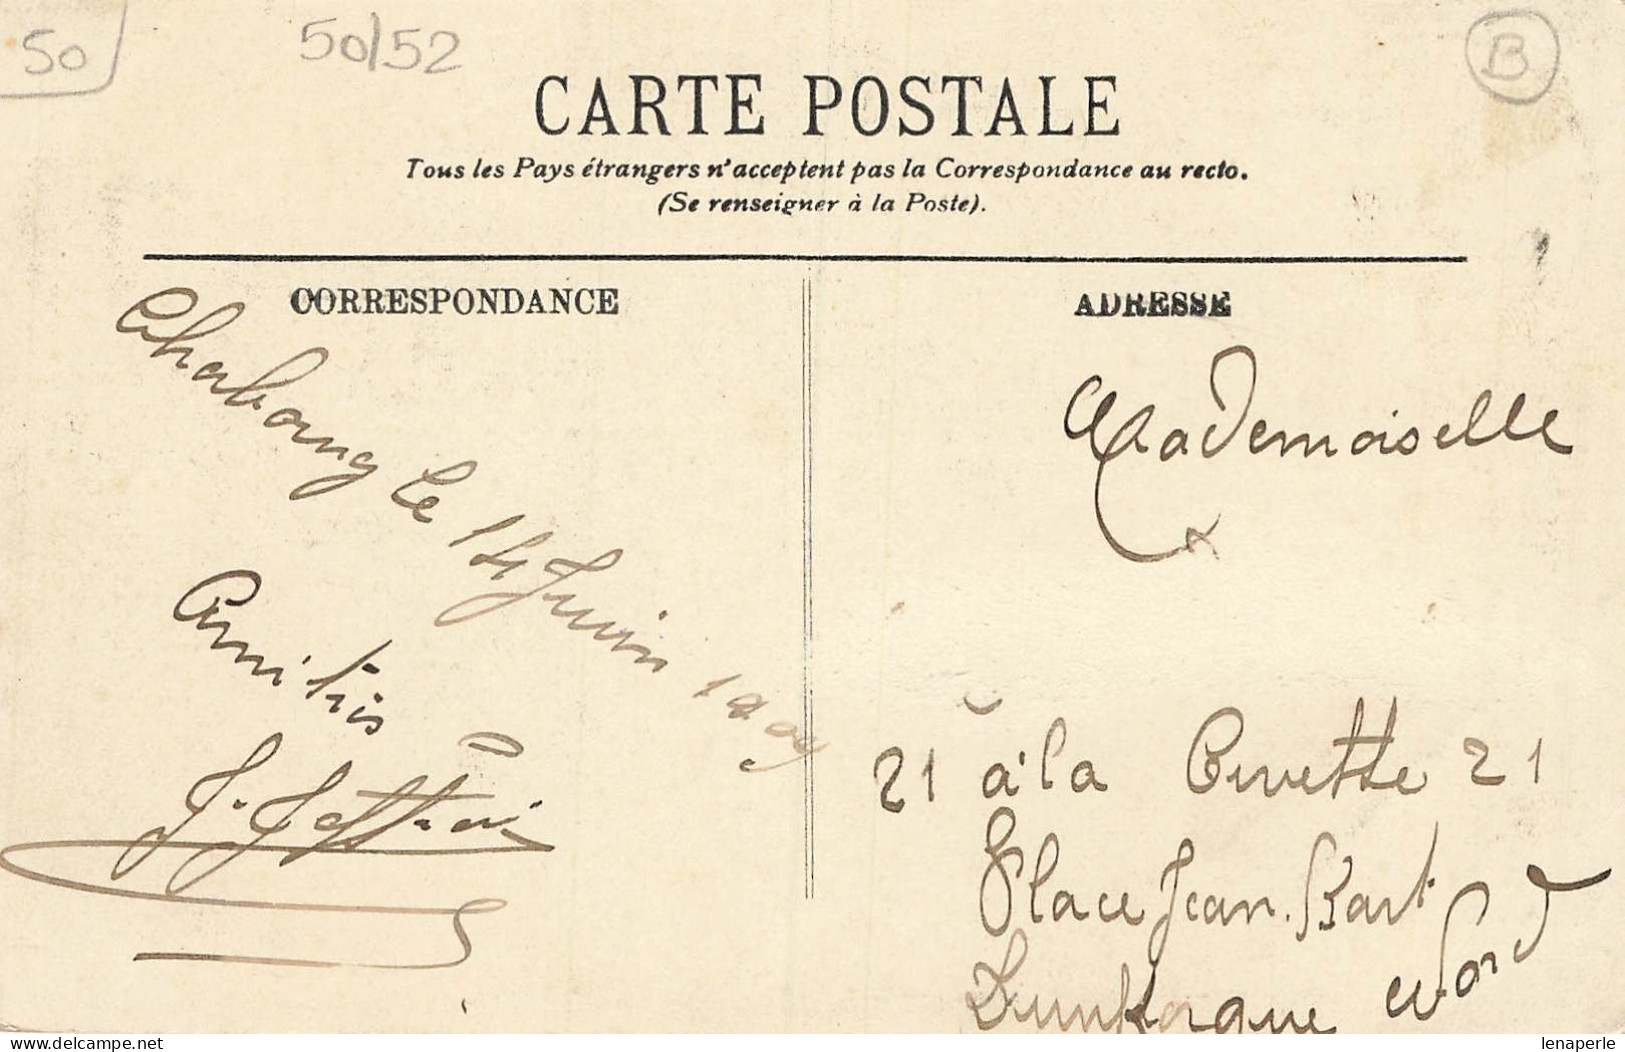 50
50/52
B
CARTE POSTALE
Tous les Pays étrangers n'acceptent pas la Correspondance au recto.
(Se renseigner à la Poste).
CORRESPONDANCE
le 14 Juin 1909
Amitiés
ADRESSE
Mademoiselle
21 à la Cuvette 21
Place Jean-Bart
Dunkerque Nord
www.delcampe.net
lenaperle